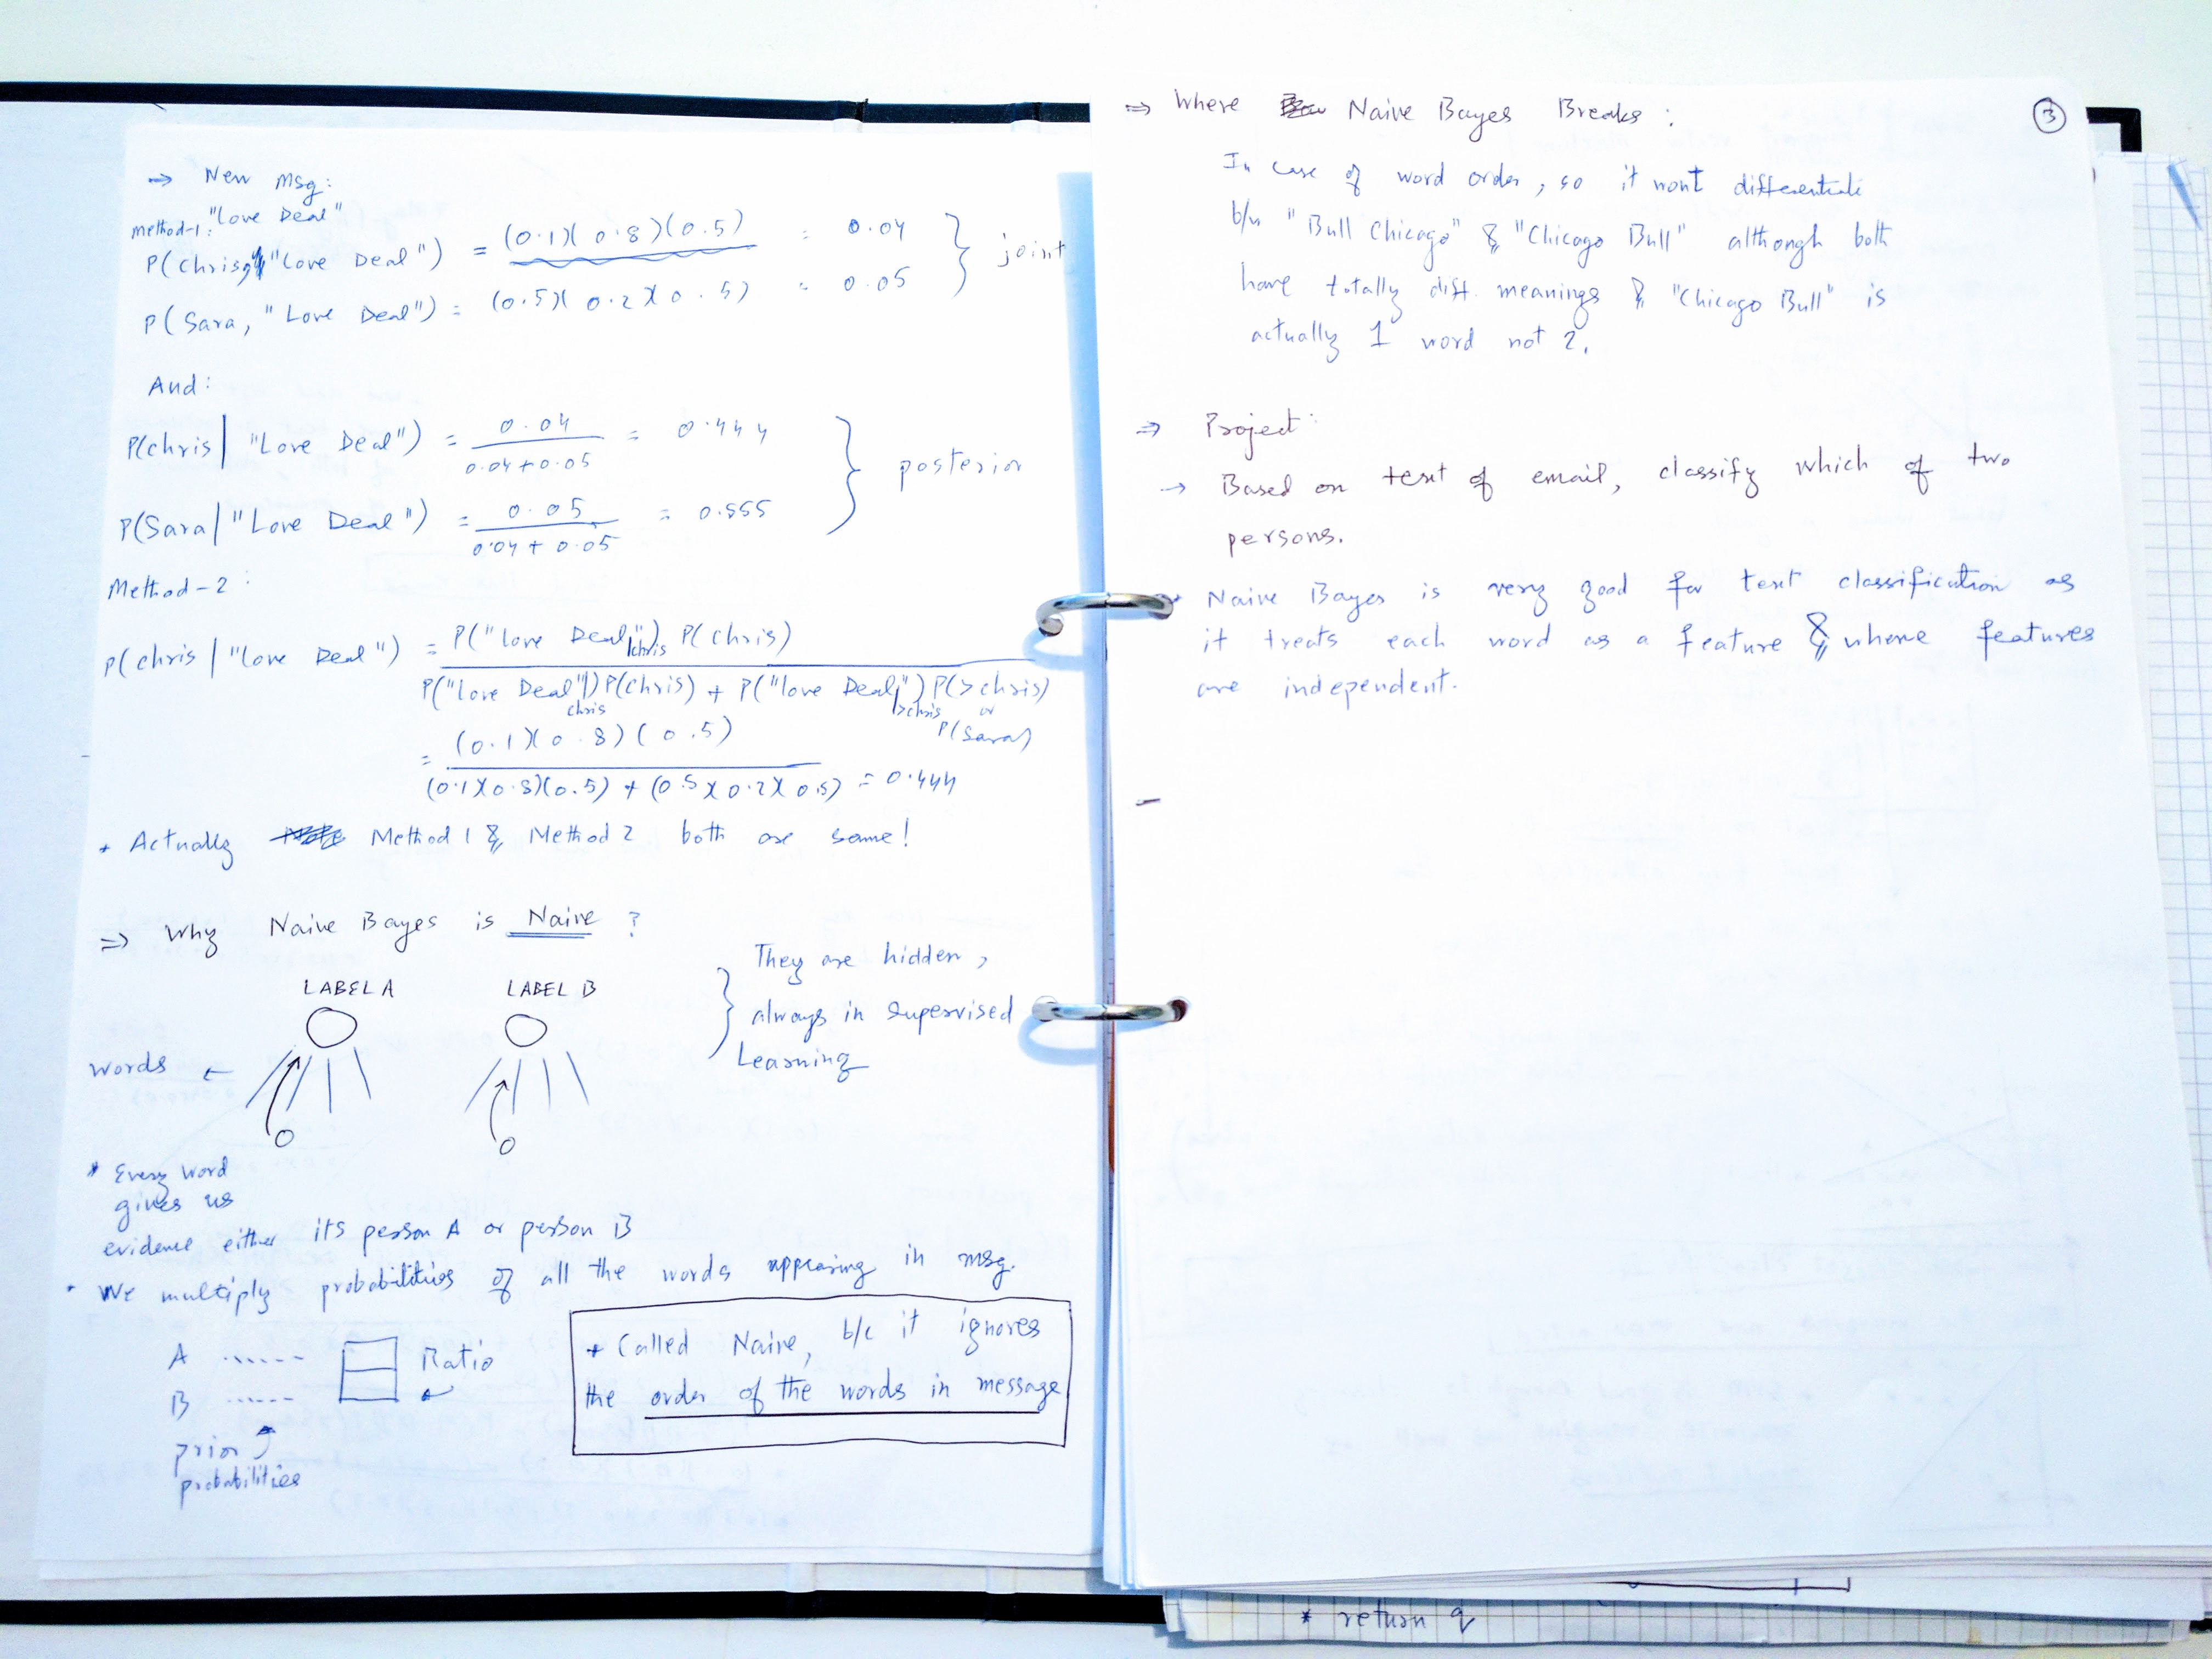 ⇒ New Msg:
"Love Deal"
Method-1:
P(Chris, "Love Deal") = (0.1)(0.8)(0.5) = 0.04
P(Sara, "Love Deal") = (0.5)(0.2)(0.5) = 0.05
joint
And:
P(Chris | "Love Deal") = 0.04 / 0.04+0.05 = 0.444
P(Sara | "Love Deal") = 0.05 / 0.04+0.05 = 0.555
posterior
Method-2:
P(Chris | "Love Deal") = P("Love Deal"|Chris) P(Chris)
P("Love Deal"|Chris) P(Chris) + P("Love Deal"|>Chris) P(>Chris)
or
P(Sara)
= (0.1)(0.8)(0.5)
(0.1)(0.8)(0.5) + (0.5)(0.2)(0.5) = 0.444
* Actually Method 1 & Method 2 both are same!
⇒ Why Naive Bayes is Naive ?
LABEL A LABEL B
They are hidden,
always in Supervised
Learning
words ←
* Every word
gives us
evidence either its person A or person B
* We multiply probabilities of all the words appearing in msg.
A ......
B ......
Ratio
prior
probabilities
* Called Naive, b/c it ignores
the order of the words in message
⇒ Where Naive Bayes Breaks :
3
In case of word order, so it wont differentiate
b/w "Bull Chicago" & "Chicago Bull" although both
have totally diff. meanings & "Chicago Bull" is
actually 1 word not 2.
⇒ Project:
→ Based on text of email, classify which of two
persons.
* Naive Bayes is very good for text classification as
it treats each word as a feature & where features
are independent.
* return q